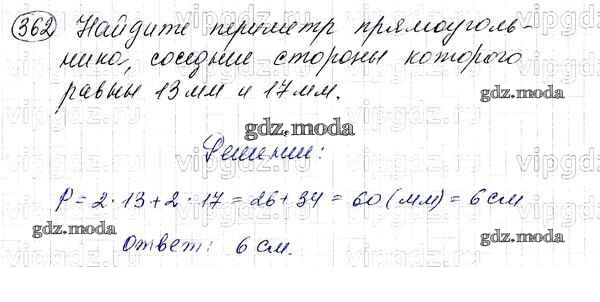 362 Найдите периметр прямоуголь-
ника, соседние стороны которого
равны 13 мм и 17 мм.
gdz.moda
gdz.moda
Решение:
P = 2 · 13 + 2 · 17 = 26 + 34 = 60 (мм) = 6 см
gdz.moda
Ответ: 6 см.
gdz.moda